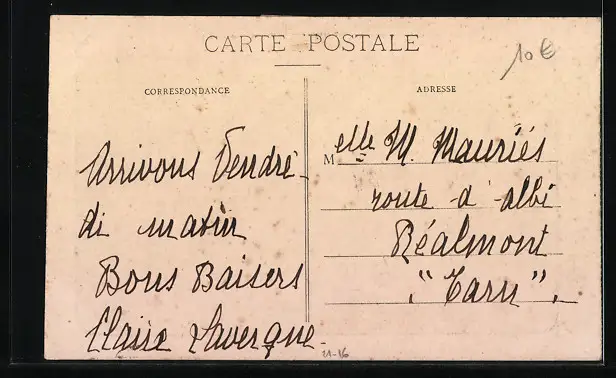 CARTE POSTALE
10€
CORRESPONDANCE
ADRESSE
Arrivons Vendre-
di matin
Bons Baisers
Claire Lavergne.
Melles M. Mauriés
route d'albi
Réalmont
"Tarn".
21-16